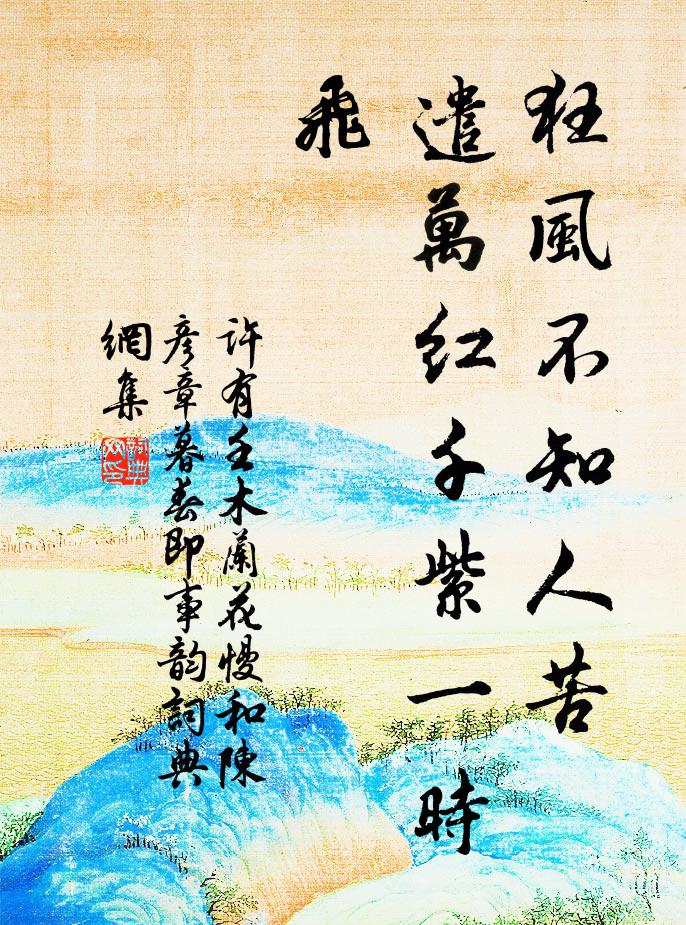 狂風不知人苦
遣萬红千紫一時
飛
許有壬木蘭花慢和陳
彥章暮春即事韵詞典
網集